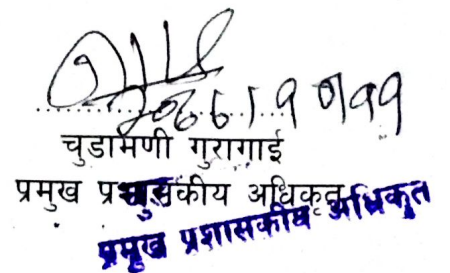 चुडामणी गुरागाई
प्रमुख प्रशासकीय अधिकृत
प्रमुख प्रशासकीय अधिकृत